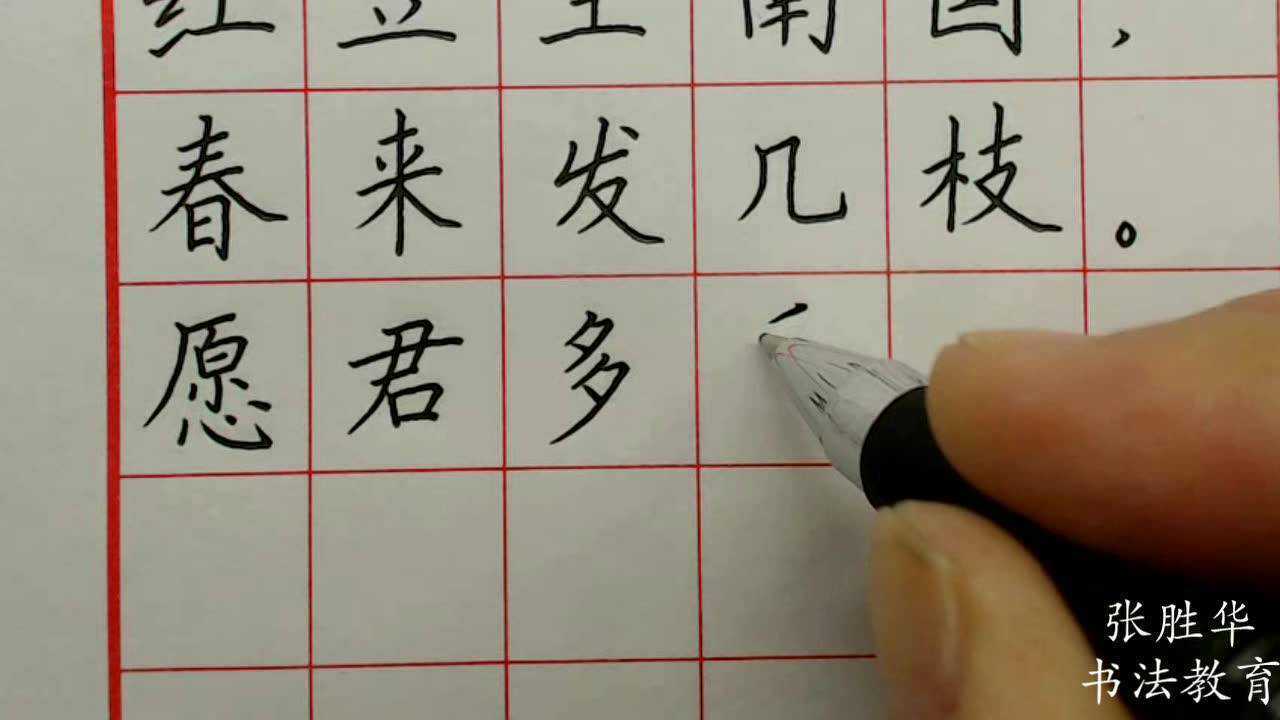 红豆生南国，
春来发几枝。
愿君多
张胜华
书法教育